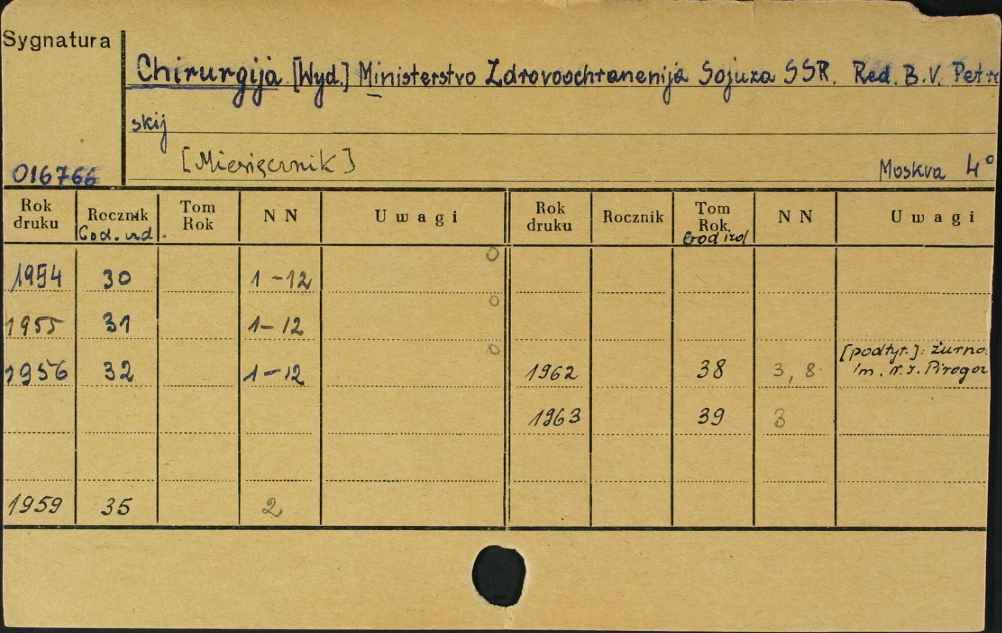 Sygnatura
Chirurgija [Wyd.] Ministerstvo Zdravoochranenija Sojuza SSR. Red. B.V. Petro
skij
[Miesięcznik]
016766 Moskva 4°
Rok druku Rocznik God. izd. Tom Rok N N Uwagi Rok druku Rocznik Tom Rok God izd N N Uwagi
1954 30 1-12 0
1955 31 1-12 0
1956 32 1-12 0
1962 38 3, 8 [podtyt.]: Żurno.
im. Pirogo
1963 39 3
1959 35 2